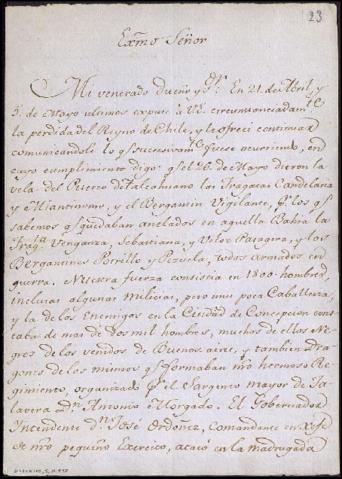 23
Exmo Señor
Mi venerado Dueño y Sr. En 21 de Abril, y
5. de Mayo ultimos expuse à VE. circunstanciadamte
la perdida del Reyno de Chile, y le ofreci continuar
comunicandole lo q. succesivamte fuese ocurriendo, en
cuyo cumplimiento digo: q. el 20 de Mayo dieron la
vela del Puerto de Talcahuano las Fragatas Candelaria
y Miantinomo, y el Bergantin Vigilante, pr. los qs
sabemos q. quedaban anclados en aquella Bahia la
Fragta Venganza, Sebastiana, y Veloz Pasagera, y los
Bergantines Potrillo y Pezuela, todos armados en
guerra. Nuestra fuerza consistia en 1300 hombres,
inclusas algunas Milicias, pero muy poca Caballeria,
y la de los Enemigos en la Ciudad de Concepcion cons
taba de mas de dos mil hombres, muchos de ellos Ne
gros de los venidos de Buenos aires, y tambien Dra
gones de los mismos q. formaban ntro hermoso Re
gimiento, organizado pr. el Sargento mayor de Ta
lavera Dn. Antonio Morgado. El Gobernador
Intendente Dn. José Ordoñez, comandante en Xefe
de ntro pequeño Exercito, atacó en la madrugada